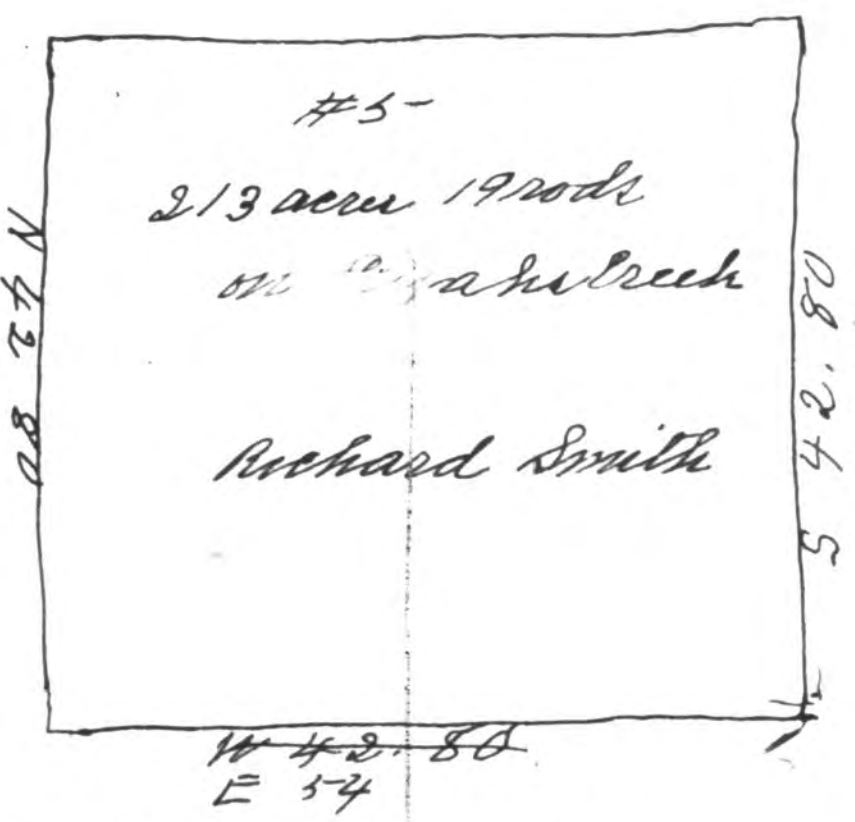 #5-
213 acres 19 rods
on Creek
Richard Smith
N 42 80
S 42.80
W 42.80
E 54